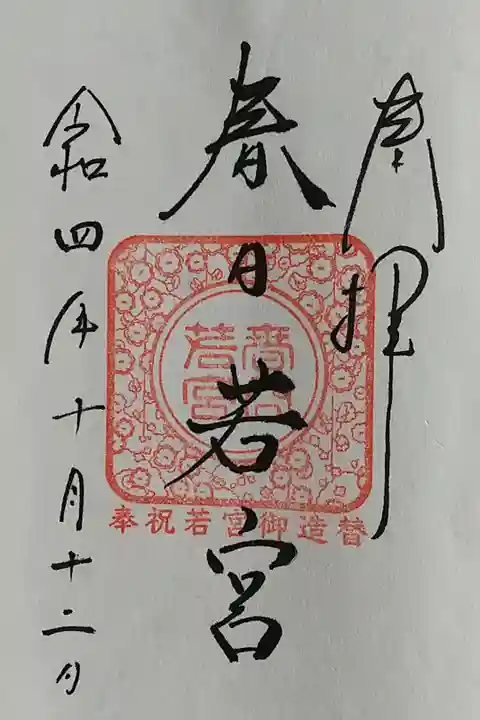 奉拝
春日若宮
令和四年十月十二日
春日若宮
奉祝若宮御造替